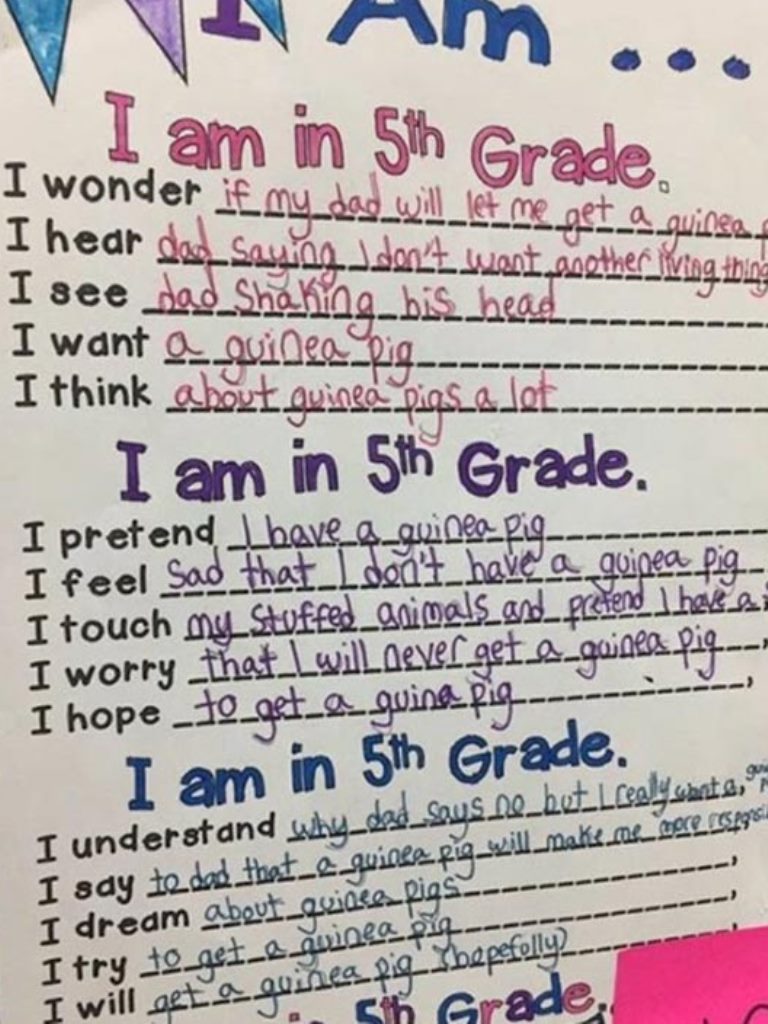 I Am ...
I am in 5th Grade.
I wonder if my dad will let me get a guinea
I hear dad saying I don't want another living thing
I see dad shaking his head
I want a guinea pig
I think about guinea pigs a lot
I am in 5th Grade.
I pretend I have a guinea pig
I feel Sad that I don't have a guinea pig
I touch my stuffed animals and pretend I have a
I worry that I will never get a guinea pig,
I hope to get a guina pig,
I am in 5th Grade.
I understand why dad says no but I really want a,
I say to dad that a guinea pig will make me more
I dream about guinea pigs,
I try to get a guinea pig,
I will get a guinea pig (hopefolly)
5th Grade.